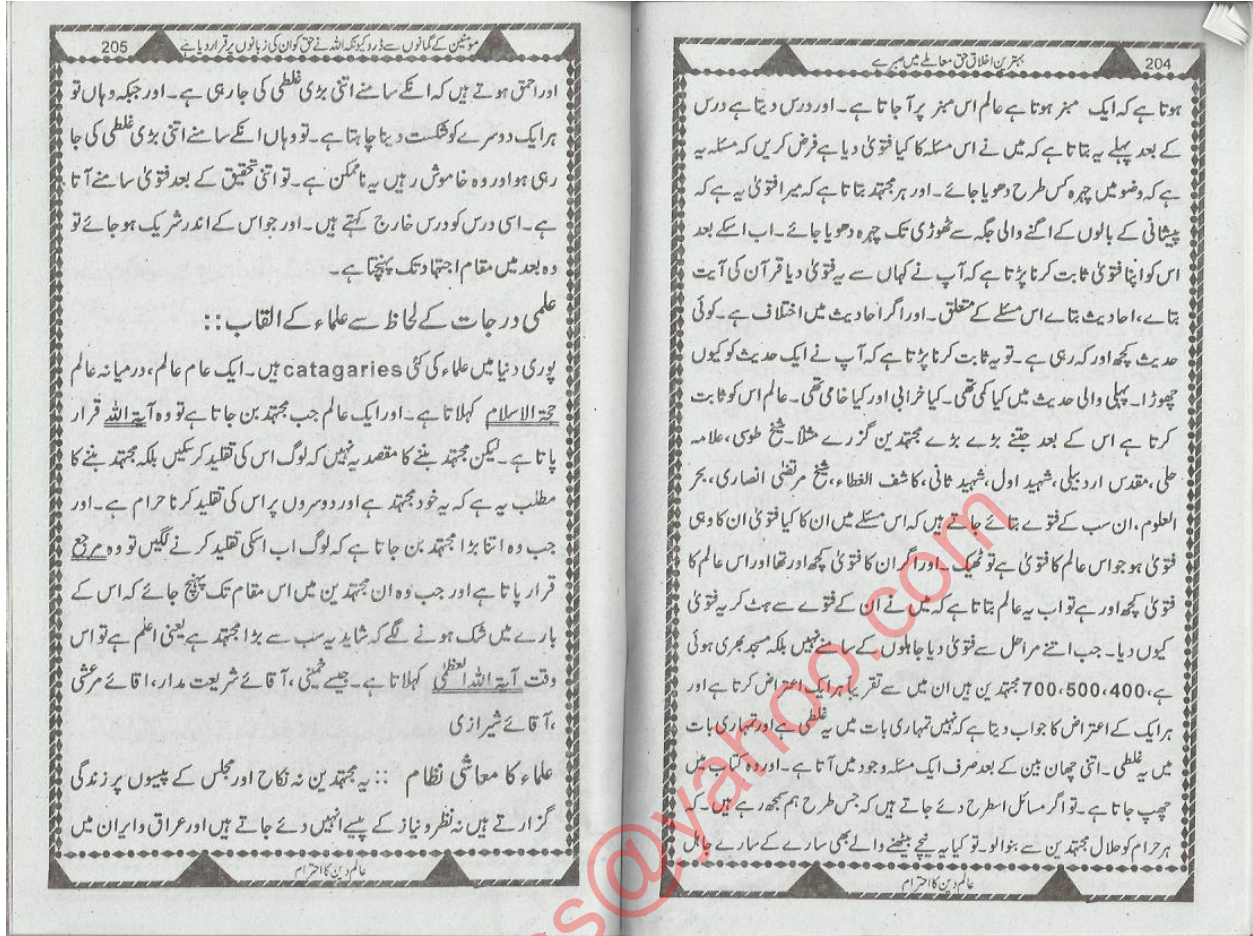 بہترین اخلاق حق معاملے میں صبر ہے
204
ہوتا ہے کہ ایک منبر ہوتا ہے عالم اس منبر پر آ جاتا ہے۔ اور درس دیتا ہے درس
کے بعد پہلے یہ بتاتا ہے کہ میں نے اس مسئلہ کا کیا فتویٰ دیا ہے فرض کریں کہ مسئلہ یہ
ہے کہ وضو میں چہرہ کس طرح دھویا جائے۔ اور ہر مجتہد بتاتا ہے کہ میرا فتویٰ یہ ہے کہ
پیشانی کے بالوں کے اگنے والی جگہ سے ٹھوڑی تک چہرہ دھویا جائے۔ اب اسکے بعد
اس کو اپنا فتویٰ ثابت کرنا پڑتا ہے کہ آپ نے کہاں سے یہ فتویٰ دیا قرآن کی آیت
بتاے، احادیث بتاے اس مسئلے کے متعلق۔ اور اگر احادیث میں اختلاف ہے۔ کوئی
حدیث کچھ اور کہ رہی ہے۔ تو یہ ثابت کرنا پڑتا ہے کہ آپ نے ایک حدیث کو کیوں
چھوڑا۔ پہلی والی حدیث میں کیا کمی تھی۔ کیا خرابی اور کیا خامی تھی۔ عالم اس کو ثابت
کرتا ہے اس کے بعد جتنے بڑے بڑے مجتہدین گزرے مثلاً۔ شیخ طوسی، علامہ
حلی، مقدس اردبیلی، شہید اول، شہید ثانی، کاشف الغطاء، شیخ مرتضیٰ انصاری، بحر
العلوم، ان سب کے فتوے بتائے جاتے ہیں کہ اس مسئلے میں ان کا کیا فتویٰ ان کا وہی
فتویٰ ہو جو اس عالم کا فتویٰ ہے تو ٹھیک۔ اور اگر ان کا فتویٰ کچھ اور تھا اور اس عالم کا
فتویٰ کچھ اور ہے تو اب یہ عالم بتاتا ہے کہ میں نے ان کے فتوے سے ہٹ کر یہ فتویٰ
کیوں دیا۔ جب اتنے مراحل سے فتویٰ دیا جاہلوں کے سامنے نہیں بلکہ مسجد بھری ہوئی
ہے، 400، 500، 700 مجتہدین ہیں ان میں سے تقریباً ہر ایک اعتراض کرتا ہے اور
ہر ایک کے اعتراض کا جواب دیتا ہے کہ نہیں تمہاری بات میں یہ غلطی ہے اور تمہاری بات
میں یہ غلطی۔ اتنی چھان بین کے بعد صرف ایک مسئلہ وجود میں آتا ہے۔ اور وہ کتاب میں
چھپ جاتا ہے۔ تو اگر مسائل اسطرح دئے جاتے ہیں کہ جس طرح ہم سمجھ رہے ہیں۔ کہ
ہر حرام کو حلال مجتہدین سے بنوالو۔ تو کیا یہ نیچے بیٹھنے والے بھی سارے کے سارے جاہل
عالم دین کا احترام
مومنین کے گمانوں سے ڈرو کیونکہ اللہ نے حق کو ان کی زبانوں پر قرار دیا ہے
205
اور احمق ہوتے ہیں کہ انکے سامنے اتنی بڑی غلطی کی جا رہی ہے۔ اور جبکہ وہاں تو
ہر ایک دوسرے کو شکست دینا چاہتا ہے۔ تو وہاں انکے سامنے اتنی بڑی غلطی کی جا
رہی ہو اور وہ خاموش رہیں یہ ناممکن ہے۔ تو اتنی تحقیق کے بعد فتویٰ سامنے آتا
ہے۔ اسی درس کو درس خارج کہتے ہیں۔ اور جو اس کے اندر شریک ہو جائے تو
وہ بعد میں مقام اجتہاد تک پہنچتا ہے۔
علمی درجات کے لحاظ سے علماء کے القاب::
پوری دنیا میں علماء کی کئی catagaries ہیں۔ ایک عام عالم، درمیانہ عالم
حجۃ الاسلام کہلاتا ہے۔ اور ایک عالم جب مجتہد بن جاتا ہے تو وہ آیۃ اللہ قرار
پاتا ہے۔ لیکن مجتہد بننے کا مقصد یہ نہیں کہ لوگ اس کی تقلید کر سکیں بلکہ مجتہد بننے کا
مطلب یہ ہے کہ یہ خود مجتہد ہے اور دوسروں پر اس کی تقلید کرنا حرام ہے۔ اور
جب وہ اتنا بڑا مجتہد بن جاتا ہے کہ لوگ اب اسکی تقلید کرنے لگیں تو وہ مرجع
قرار پاتا ہے اور جب وہ ان مجتہدین میں اس مقام تک پہنچ جائے کہ اس کے
بارے میں شک ہونے لگے کہ شاید یہ سب سے بڑا مجتہد ہے یعنی اعلم ہے تو اس
وقت آیۃ اللہ العظمیٰ کہلاتا ہے۔ جیسے خمینی، آقائے شریعت مدار، اقائے مرعشی
،آقائے شیرازی
علماء کا معاشی نظام :: یہ مجتہدین نہ نکاح اور مجلس کے پیسوں پر زندگی
گزارتے ہیں نہ نظر و نیاز کے پیسے انہیں دئے جاتے ہیں اور عراق و ایران میں
عالم دین کا احترام
s@yahoo.com